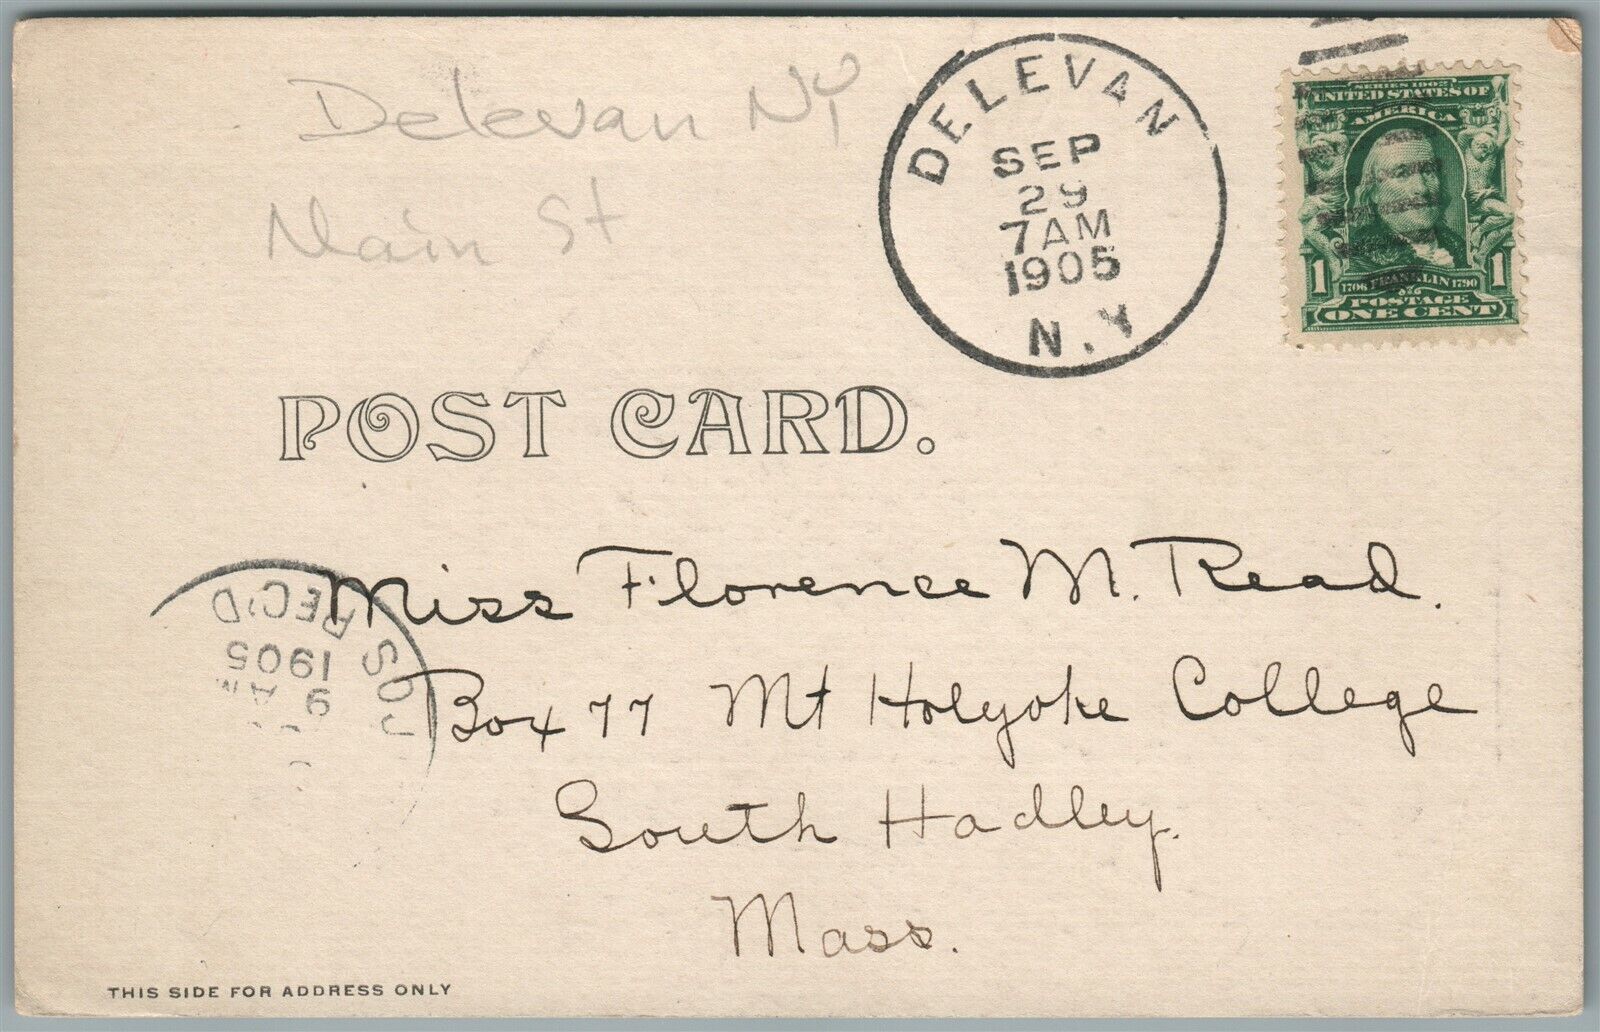 Delevan NY
Main St
DELEVAN
SEP
29
7 AM
1905
N.Y
SERIES 1902
UNITED STATES OF
AMERICA
1 1
1706 FRANKLIN 1790
POSTAGE
ONE CENT
POST CARD.
Miss Florence M. Read.
Box 77 Mt Holyoke College
South Hadley.
Mass.
REC'D
1905
9
THIS SIDE FOR ADDRESS ONLY